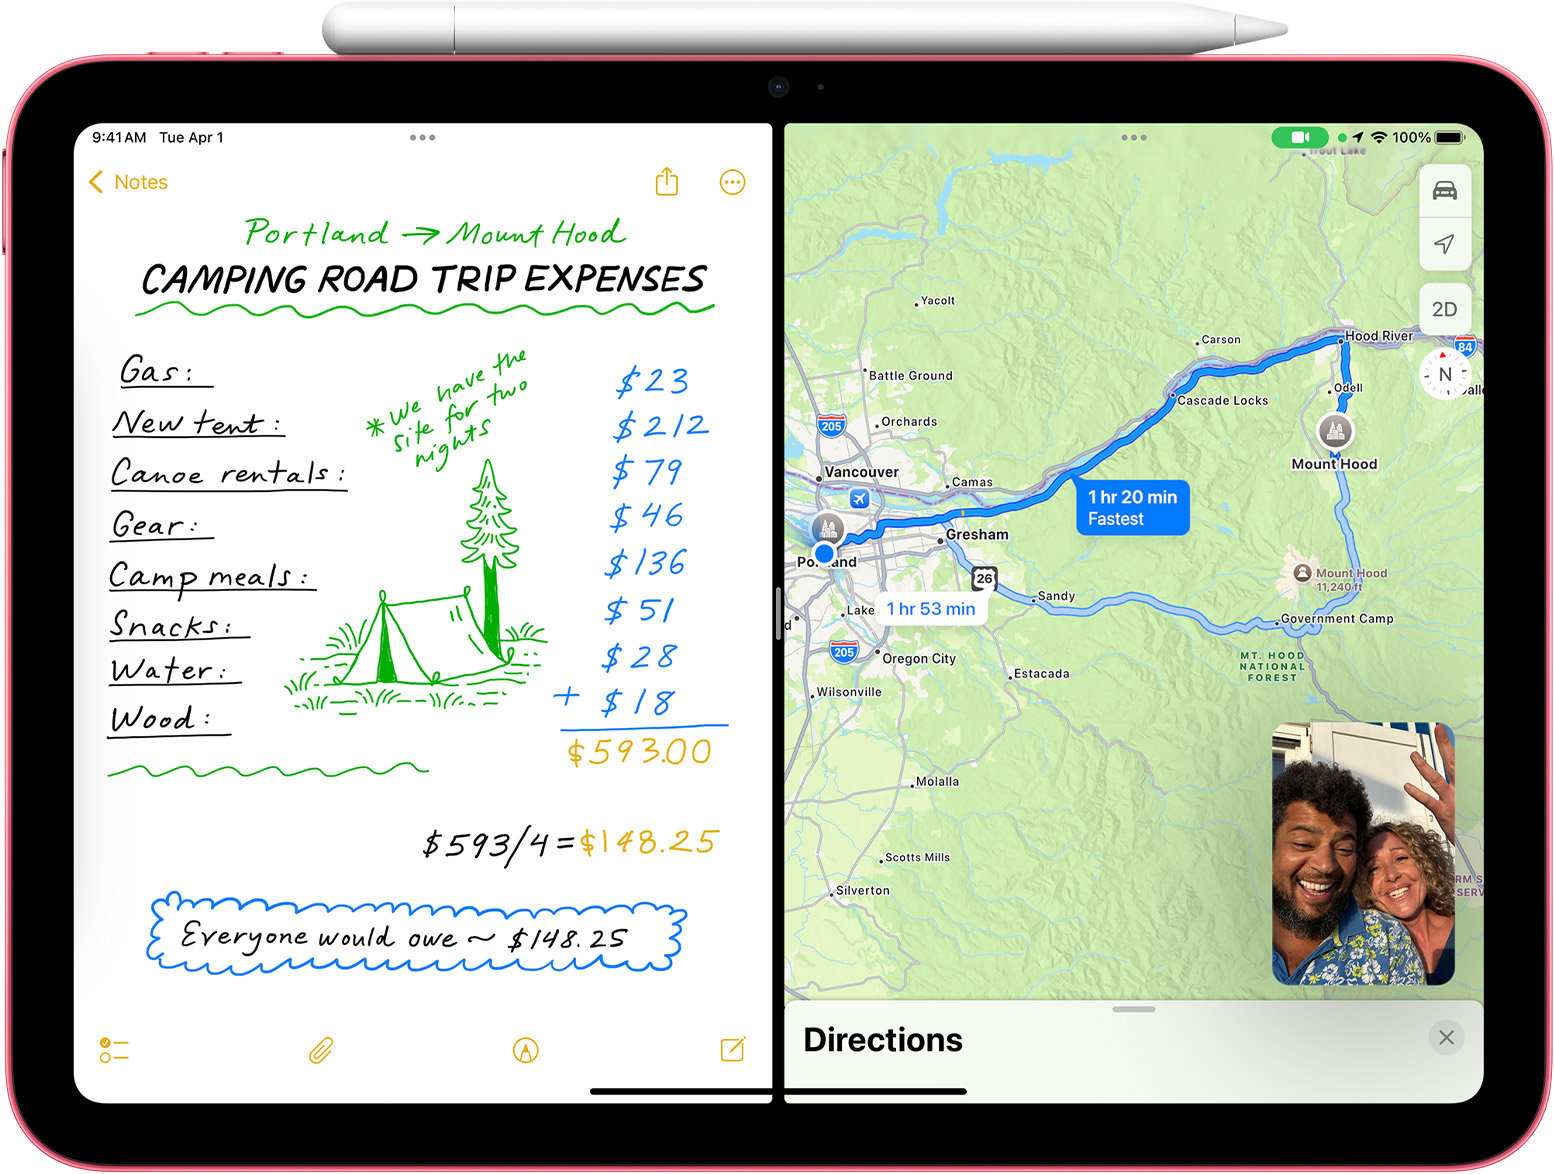 9:41 AM Tue Apr 1
Notes
Portland → Mount Hood
CAMPING ROAD TRIP EXPENSES
Gas: $23
New tent: $212
Canoe rentals: $79
Gear: $46
Camp meals: $136
Snacks: $51
Water: $28
Wood: + $18
$593.00
* we have the
site for two
nights
$593/4 = $148.25
Everyone would owe ~ $148.25
100%
Trout Lake
2D
N
Yacolt
Carson
Hood River
84
Battle Ground
Odell
Cascade Locks
205
Orchards
Mount Hood
Vancouver
Camas
1 hr 20 min
Fastest
Gresham
Portland
26
Mount Hood
11,240 ft
Sandy
1 hr 53 min
Lake
Government Camp
205
Oregon City
MT. HOOD
NATIONAL
FOREST
Estacada
Wilsonville
Molalla
Scotts Mills
Silverton
Directions